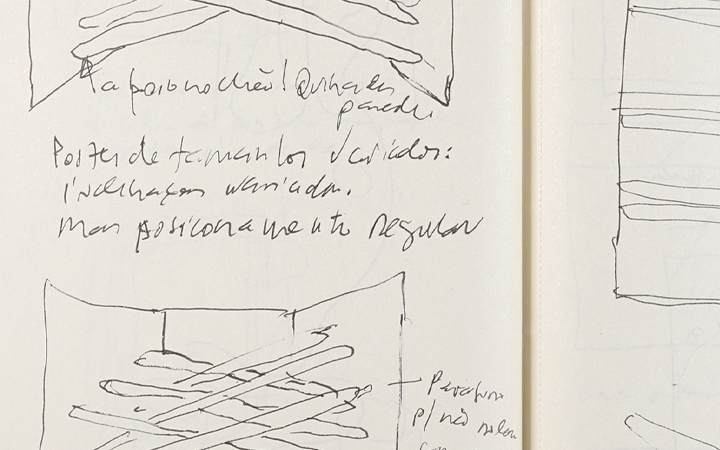 apoio no chão! Quina da
parede.
Postes de tamanhos variados:
inclinação variada.
mas posicionamento regular
Parafuso
p/ não rolar